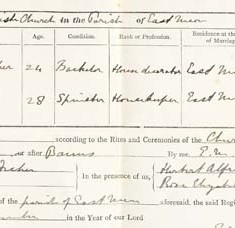 ish Church in the Parish of East Meon
Age. Condition. Rank or Profession. Residence at the
of Marriag
her 24 Bachelor House decorator East M
28 Spinster Housekeeper East M
according to the Rites and Ceremonies of the Chur
or after Banns By me, E. M.
Fischer in the presence of us, Herbert Alfre
Rose Elizab
of the parish of East Meon aforesaid, do
in the Year of our Lord